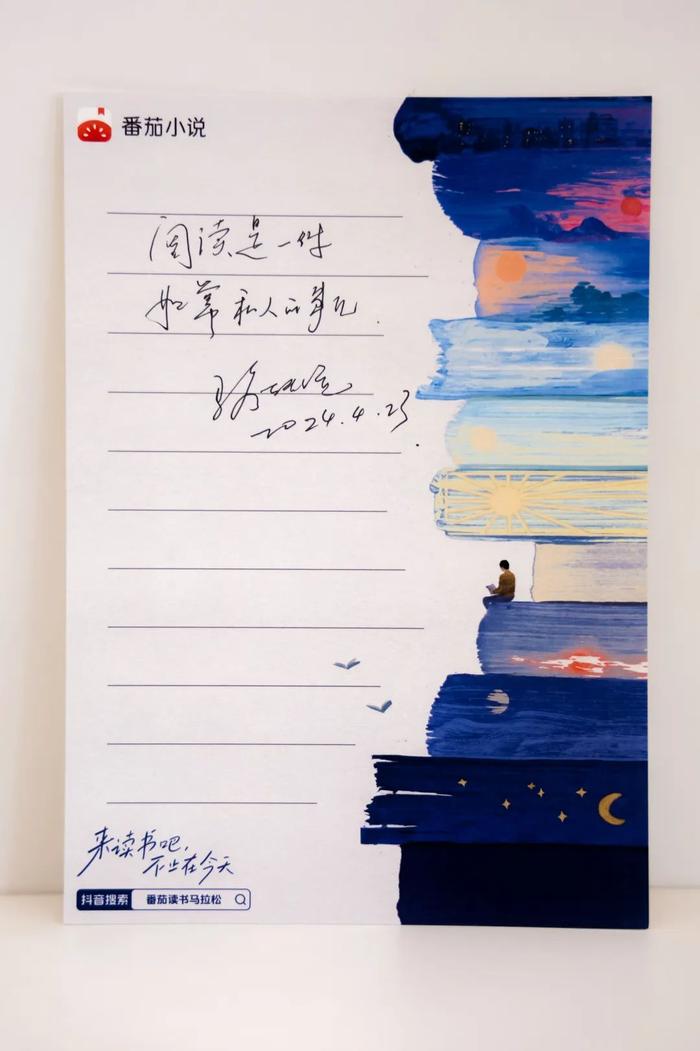 番茄小说
阅读是一件
如常私人的事儿.
2024.4.23
来读书吧,
不止在今天
抖音搜索 番茄读书马拉松